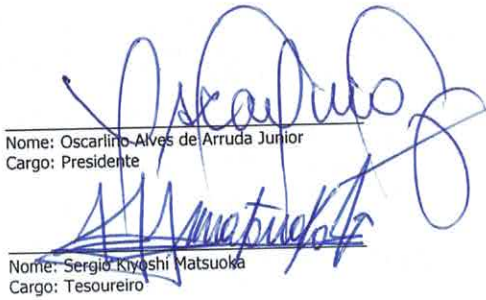 Oscarlino
Nome: Oscarlino Alves de Arruda Junior
Cargo: Presidente
Matsuoka
Nome: Sergio Kiyoshi Matsuoka
Cargo: Tesoureiro